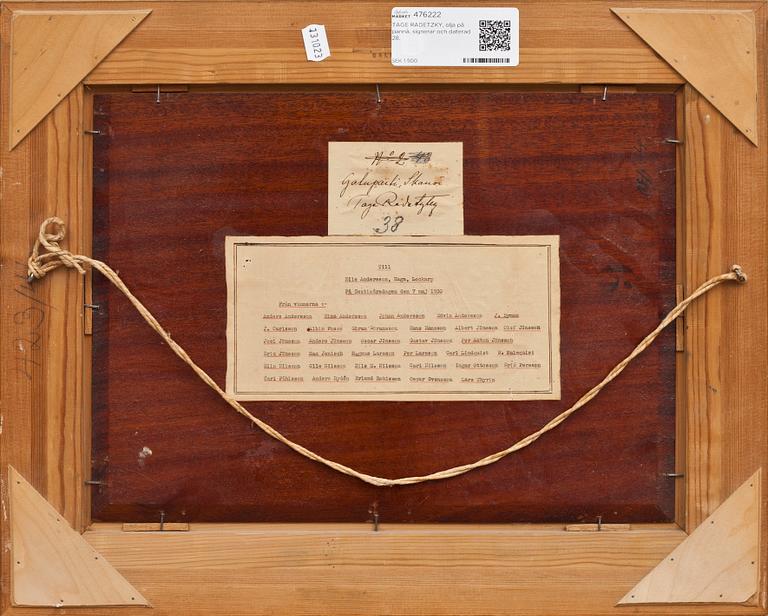 MARKET 476222
TAGE RADETZKY, olja på
pannå, signerar och daterad
28.
SEK 1 500
431023
Nº 2
Skanör
Tage Radetzky
38
Till
Nils Andersson, Haga, Lockarp
På Sextioårsdagen den 7 maj 1930
Från vännerna :-
Anders Andersson Elna Andersson Johan Andersson Edvin Andersson J. Dyman
J. Carlsson Albin Fosse Göran Göransson Hans Hansson Albert Jönsson Olof Jönsson
Joel Jönsson Anders Jönsson Oscar Jönsson Gustav Jönsson Per Anton Jönsson
Erik Jönsson Max Jenisch Magnus Larsson Per Larsson Carl Lindqvist E. Malmqvist
Elin Nilsson Olle Nilsson Nils M. Nilsson Carl Nilsson Ingar Ottosson Erik Persson
Carl Påhlsson Anders Rydén Erland Rohlsson Oscar Svensson Lars Thyvin